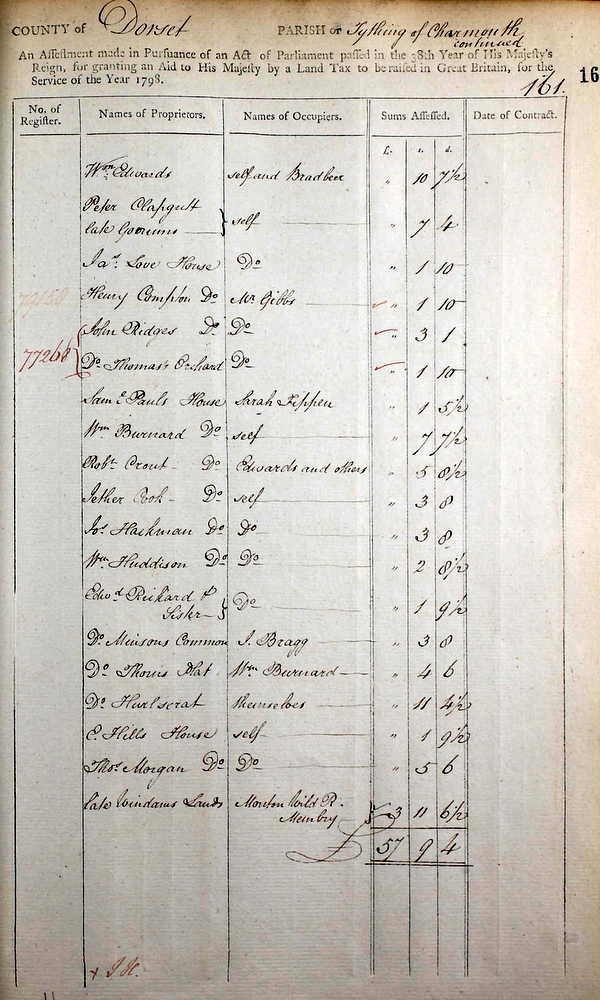 COUNTY of Dorset PARISH of Tything of Charmouth
continued
An Assessment made in Pursuance of an Act of Parliament passed in the 38th Year of His Majesty's
Reign, for granting an Aid to His Majesty by a Land Tax to be raised in Great Britain, for the
Service of the Year 1798.
161. 16
No. of Register. Names of Proprietors. Names of Occupiers. Sums Assessed. Date of Contract.
£. s. d.
Wm Edwards self and Bradbeer " 10 7½
Peter Clapcutt
late } self " 7 4
Jas. Love House Do " 1 10
Henry Compton Do Mr. Gibbs " 1 10
John Ridges Do Do " 3 1
77268 { Do Thomas Orchard Do " 1 10
Sam E Pauls House Sarah Tippen " 1 5½
Wm Burnard Do self " 7 7½
Robt Crout Do Edwards and others " 5 8½
Jether Cook Do self " 3 8
Jos. Hackman Do Do " 3 8
Wm Huddison Do Do " 2 8½
Edwd Rickard &
Sister } Do " 1 9½
Do Minsons Common J. Bragg " 3 8
Do Thorns Plat Wm Burnard " 4 6
Do Hurlscrat themselves " 11 4½
E. Hills House self " 1 9½
Thos Morgan Do Do " 5 6
late Windams Lands Monten Wild R.
3 11 6½
£ 57 9 4
+ J H.